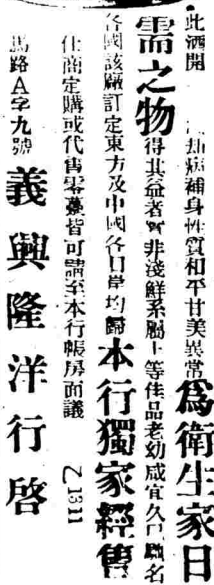 此酒開 刦病補身性質和平甘美異常為衛生家日
需之物得其益者實非淺鮮系屬上等佳品老幼咸宜久已馳名
各國該廠訂定東方及中國各口岸均歸本行獨家經售
仕商定購或代售零躉皆可請至本行帳房面議 乙1311
馬路A字九號 義興隆洋行啓